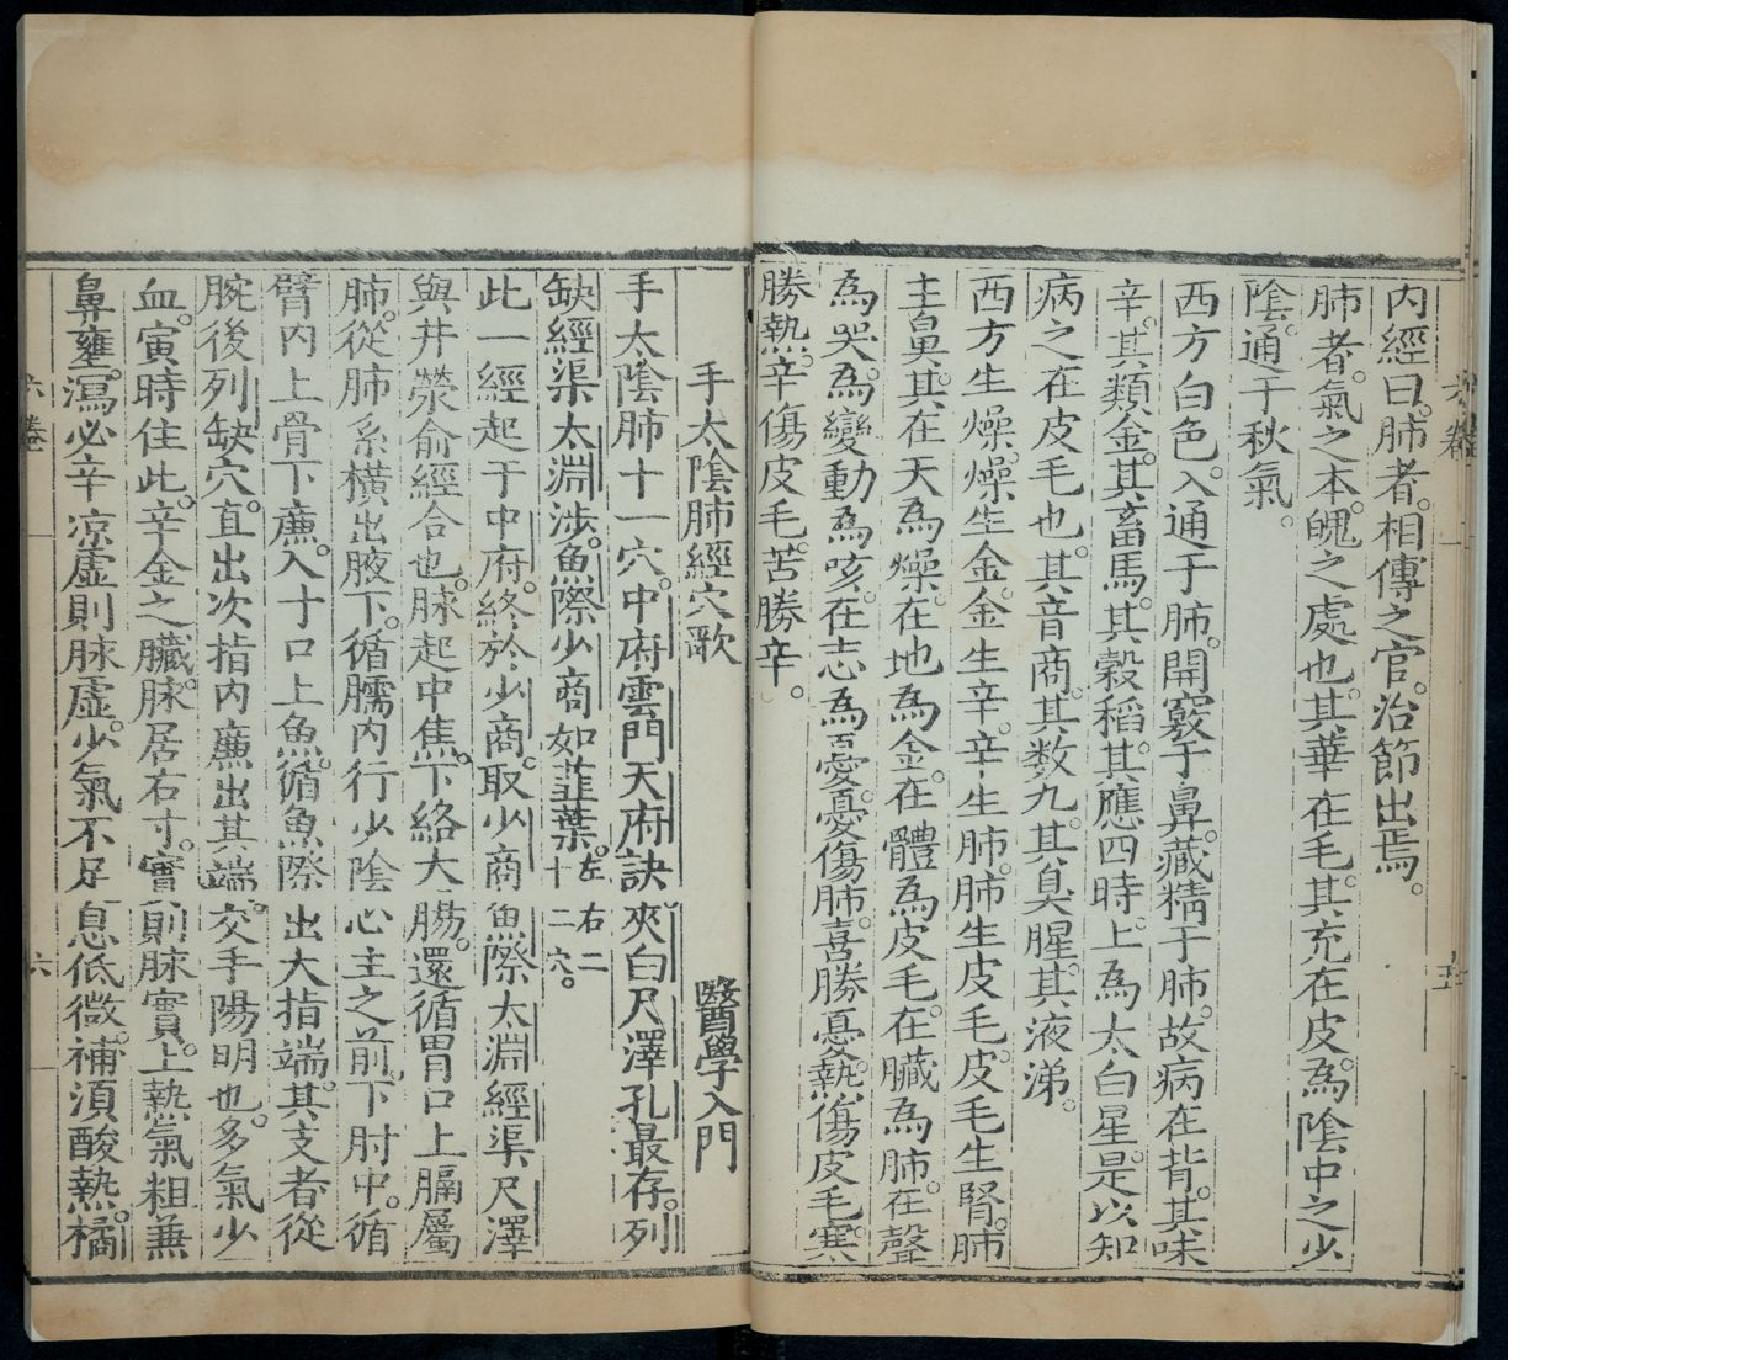 內經曰。肺者。相傳之官。治節出焉。
肺者。氣之本。魄之處也。其華在毛。其充在皮。為陰中之少
陰。通于秋氣。
西方白色。入通于肺。開竅于鼻。藏精于肺。故病在背。其味
辛。其類金。其畜馬。其穀稻。其應四時。上為太白星。是以知
病之在皮毛也。其音商。其数九。其臭腥。其液涕。
西方生燥。燥生金。金生辛。辛生肺。肺生皮毛。皮毛生腎。肺
主鼻。其在天為燥。在地為金。在體為皮毛。在臟為肺。在聲
為哭。為變動為咳。在志為憂。憂傷肺。喜勝憂。熱傷皮毛。寒
勝熱。辛傷皮毛。苦勝辛。
手太陰肺經穴歌 醫學入門
手太陰肺十一穴。中府雲門天府訣。夾白尺澤孔最存。列
缺經渠太淵涉。魚際少商如韮葉。左右二十二穴。
此一經起于中府。終於少商。取少商魚際太淵經渠尺澤
與井滎俞經合也。脉起中焦。下絡大腸。還循胃口上膈屬
肺。從肺系橫出腋下。循臑內行少陰心主之前。下肘中。循
臂內上骨下廉。入寸口上魚。循魚際出大指端。其支者從
腕後列缺穴。直出次指內廉出其端。交手陽明也。多氣少
血。寅時住此。辛金之臟。脉居右寸。實則脉實。上熱氣粗兼
鼻壅。瀉必辛凉。虛則脉虛。少氣不足息低微。補須酸熱。橘
六卷
五
六卷
六